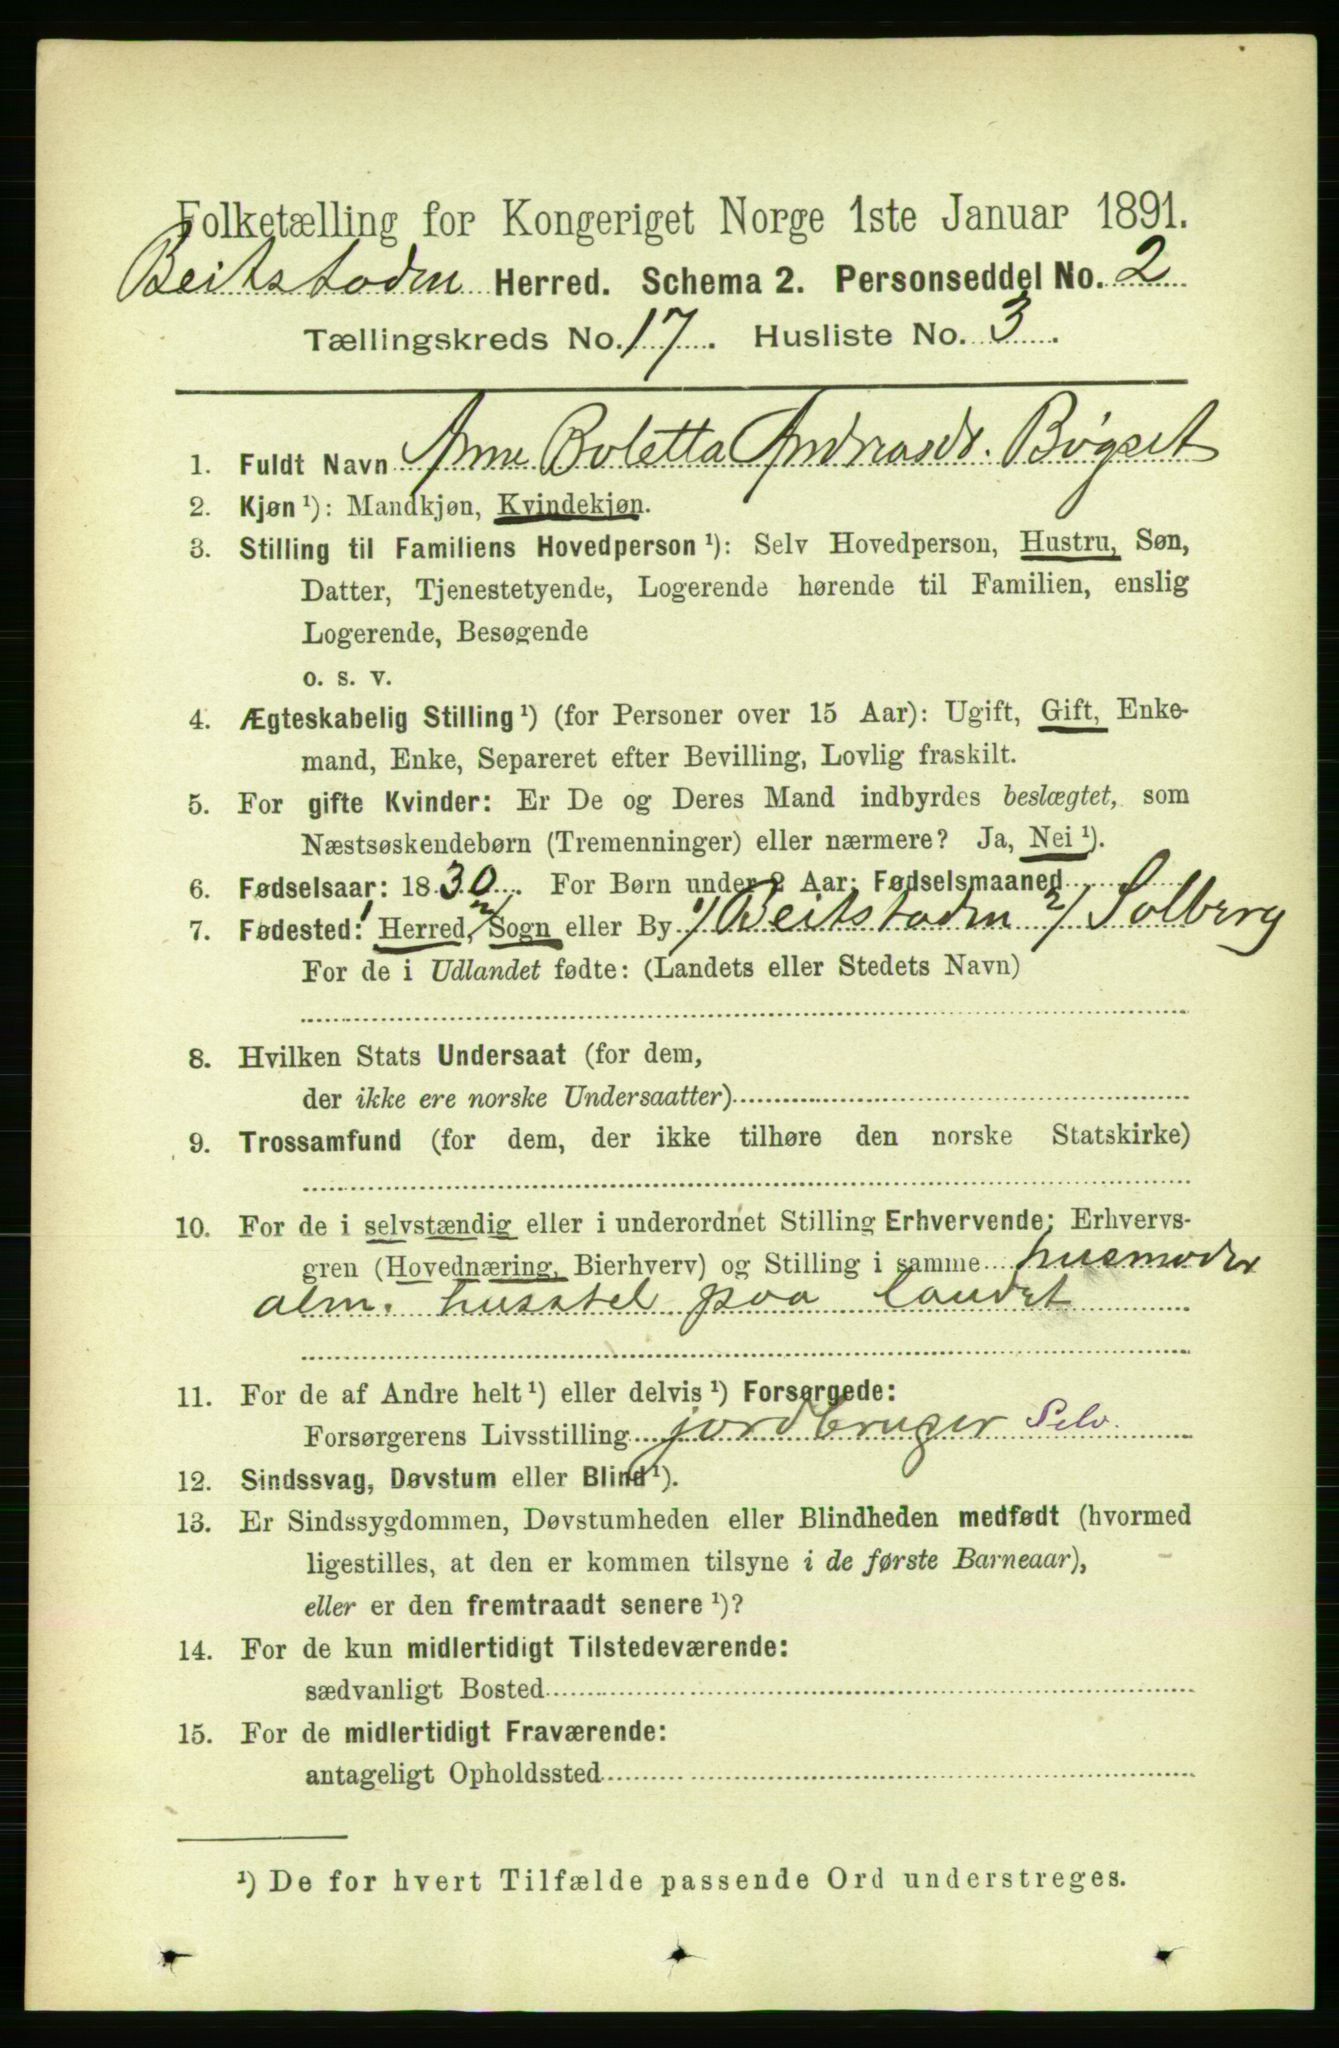 Folketælling for Kongeriget Norge 1ste Januar 1891.
Beitstaden Herred. Schema 2. Personseddel No. 2
Tællingskreds No. 17. Husliste No. 3.
1. Fuldt Navn Anne Boletta Andreasdr. Bøgset
2. Kjøn ¹): Mandkjøn, Kvindekjøn.
3. Stilling til Familiens Hovedperson ¹): Selv Hovedperson, Hustru, Søn,
Datter, Tjenestetyende, Logerende hørende til Familien, enslig
Logerende, Besøgende
o. s. v.
4. Ægteskabelig Stilling ¹) (for Personer over 15 Aar): Ugift, Gift, Enke-
mand, Enke, Separeret efter Bevilling, Lovlig fraskilt.
5. For gifte Kvinder: Er De og Deres Mand indbyrdes beslægtet, som
Næstsøskendebørn (Tremenninger) eller nærmere? Ja, Nei ¹).
6. Fødselsaar: 1830. For Børn under 2 Aar: Fødselsmaaned
7. Fødested: 1/ Herred, 2/ Sogn eller By 1/ Beitstaden 2/ Solberg
For de i Udlandet fødte: (Landets eller Stedets Navn)
8. Hvilken Stats Undersaat (for dem,
der ikke ere norske Undersaatter)
9. Trossamfund (for dem, der ikke tilhøre den norske Statskirke)
10. For de i selvstændig eller i underordnet Stilling Erhvervende: Erhvervs-
gren (Hovednæring, Bierhverv) og Stilling i samme husmoder
alm. husstel paa landet
11. For de af Andre helt ¹) eller delvis ¹) Forsørgede:
Forsørgerens Livsstilling jordbruger Selv.
12. Sindssvag, Døvstum eller Blind ¹).
13. Er Sindssygdommen, Døvstumheden eller Blindheden medfødt (hvormed
ligestilles, at den er kommen tilsyne i de første Barneaar),
eller er den fremtraadt senere ¹)?
14. For de kun midlertidigt Tilstedeværende:
sædvanligt Bosted
15. For de midlertidigt Fraværende:
antageligt Opholdssted
¹) De for hvert Tilfælde passende Ord understreges.